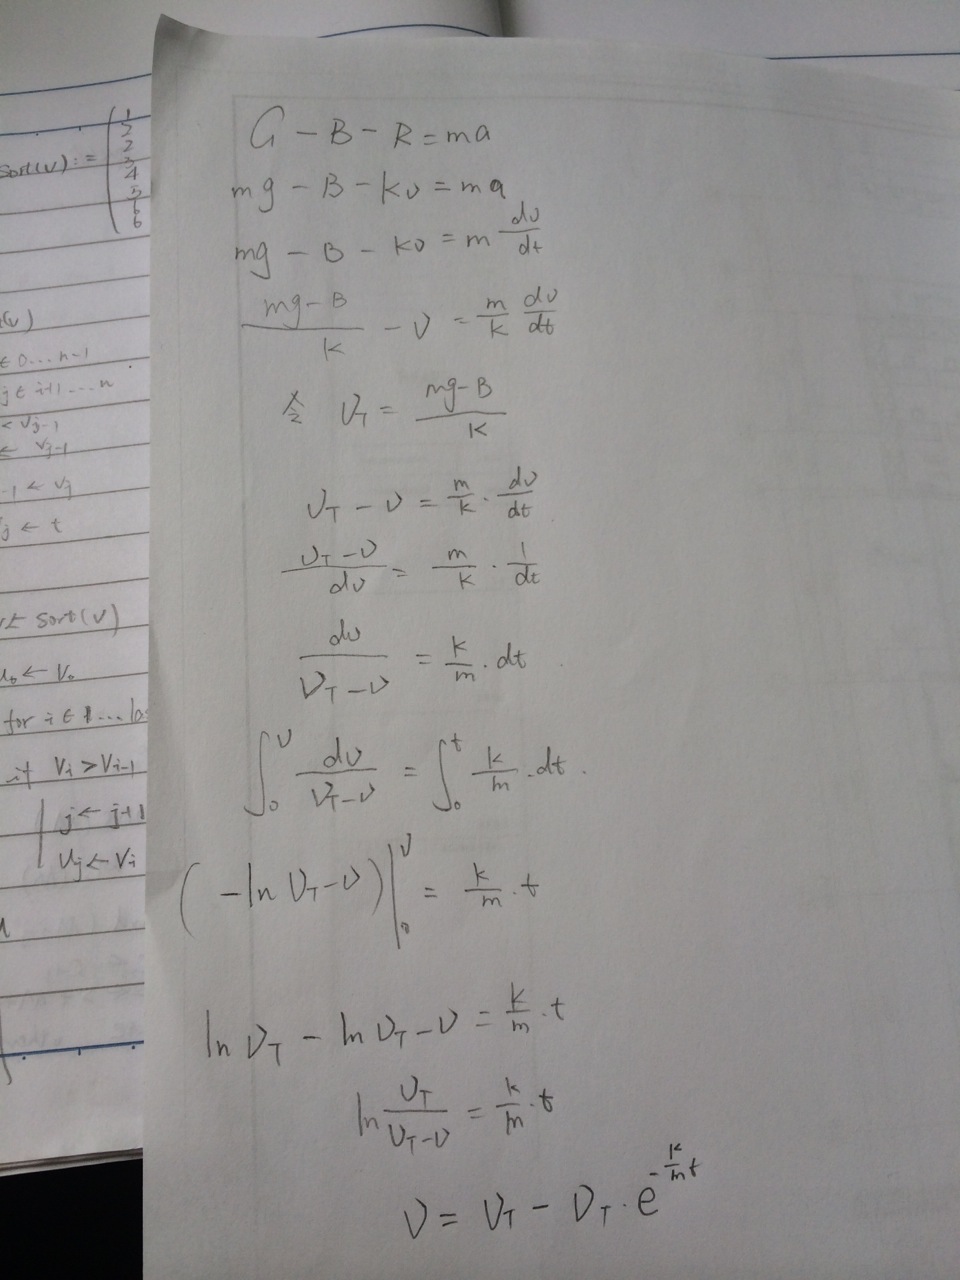 Sort(v) := ( 1 2 2 3 4 5 6 6
∈ 0...n-1
j ∈ i+1...n
< Vj-1
← Vj-1
-1 ← Vj
j ← t
← Sort(v)
u₀ ← V₀
for i ∈ 1...
if Vi > Vi-1
j ← j+1
Uj ← Vi
G - B - R = ma
mg - B - kv = ma
mg - B - kv = m dv/dt
(mg-B)/k - v = m/k dv/dt
令 v_T = (mg-B)/k
v_T - v = m/k · dv/dt
(v_T - v)/dv = m/k · 1/dt
dv/(v_T - v) = k/m · dt
∫₀^v dv/(v_T - v) = ∫₀^t k/m · dt.
(-ln v_T - v)|₀^v = k/m · t
ln v_T - ln v_T - v = k/m · t
ln v_T/(v_T - v) = k/m · t
v = v_T - v_T · e^(-k/m t)